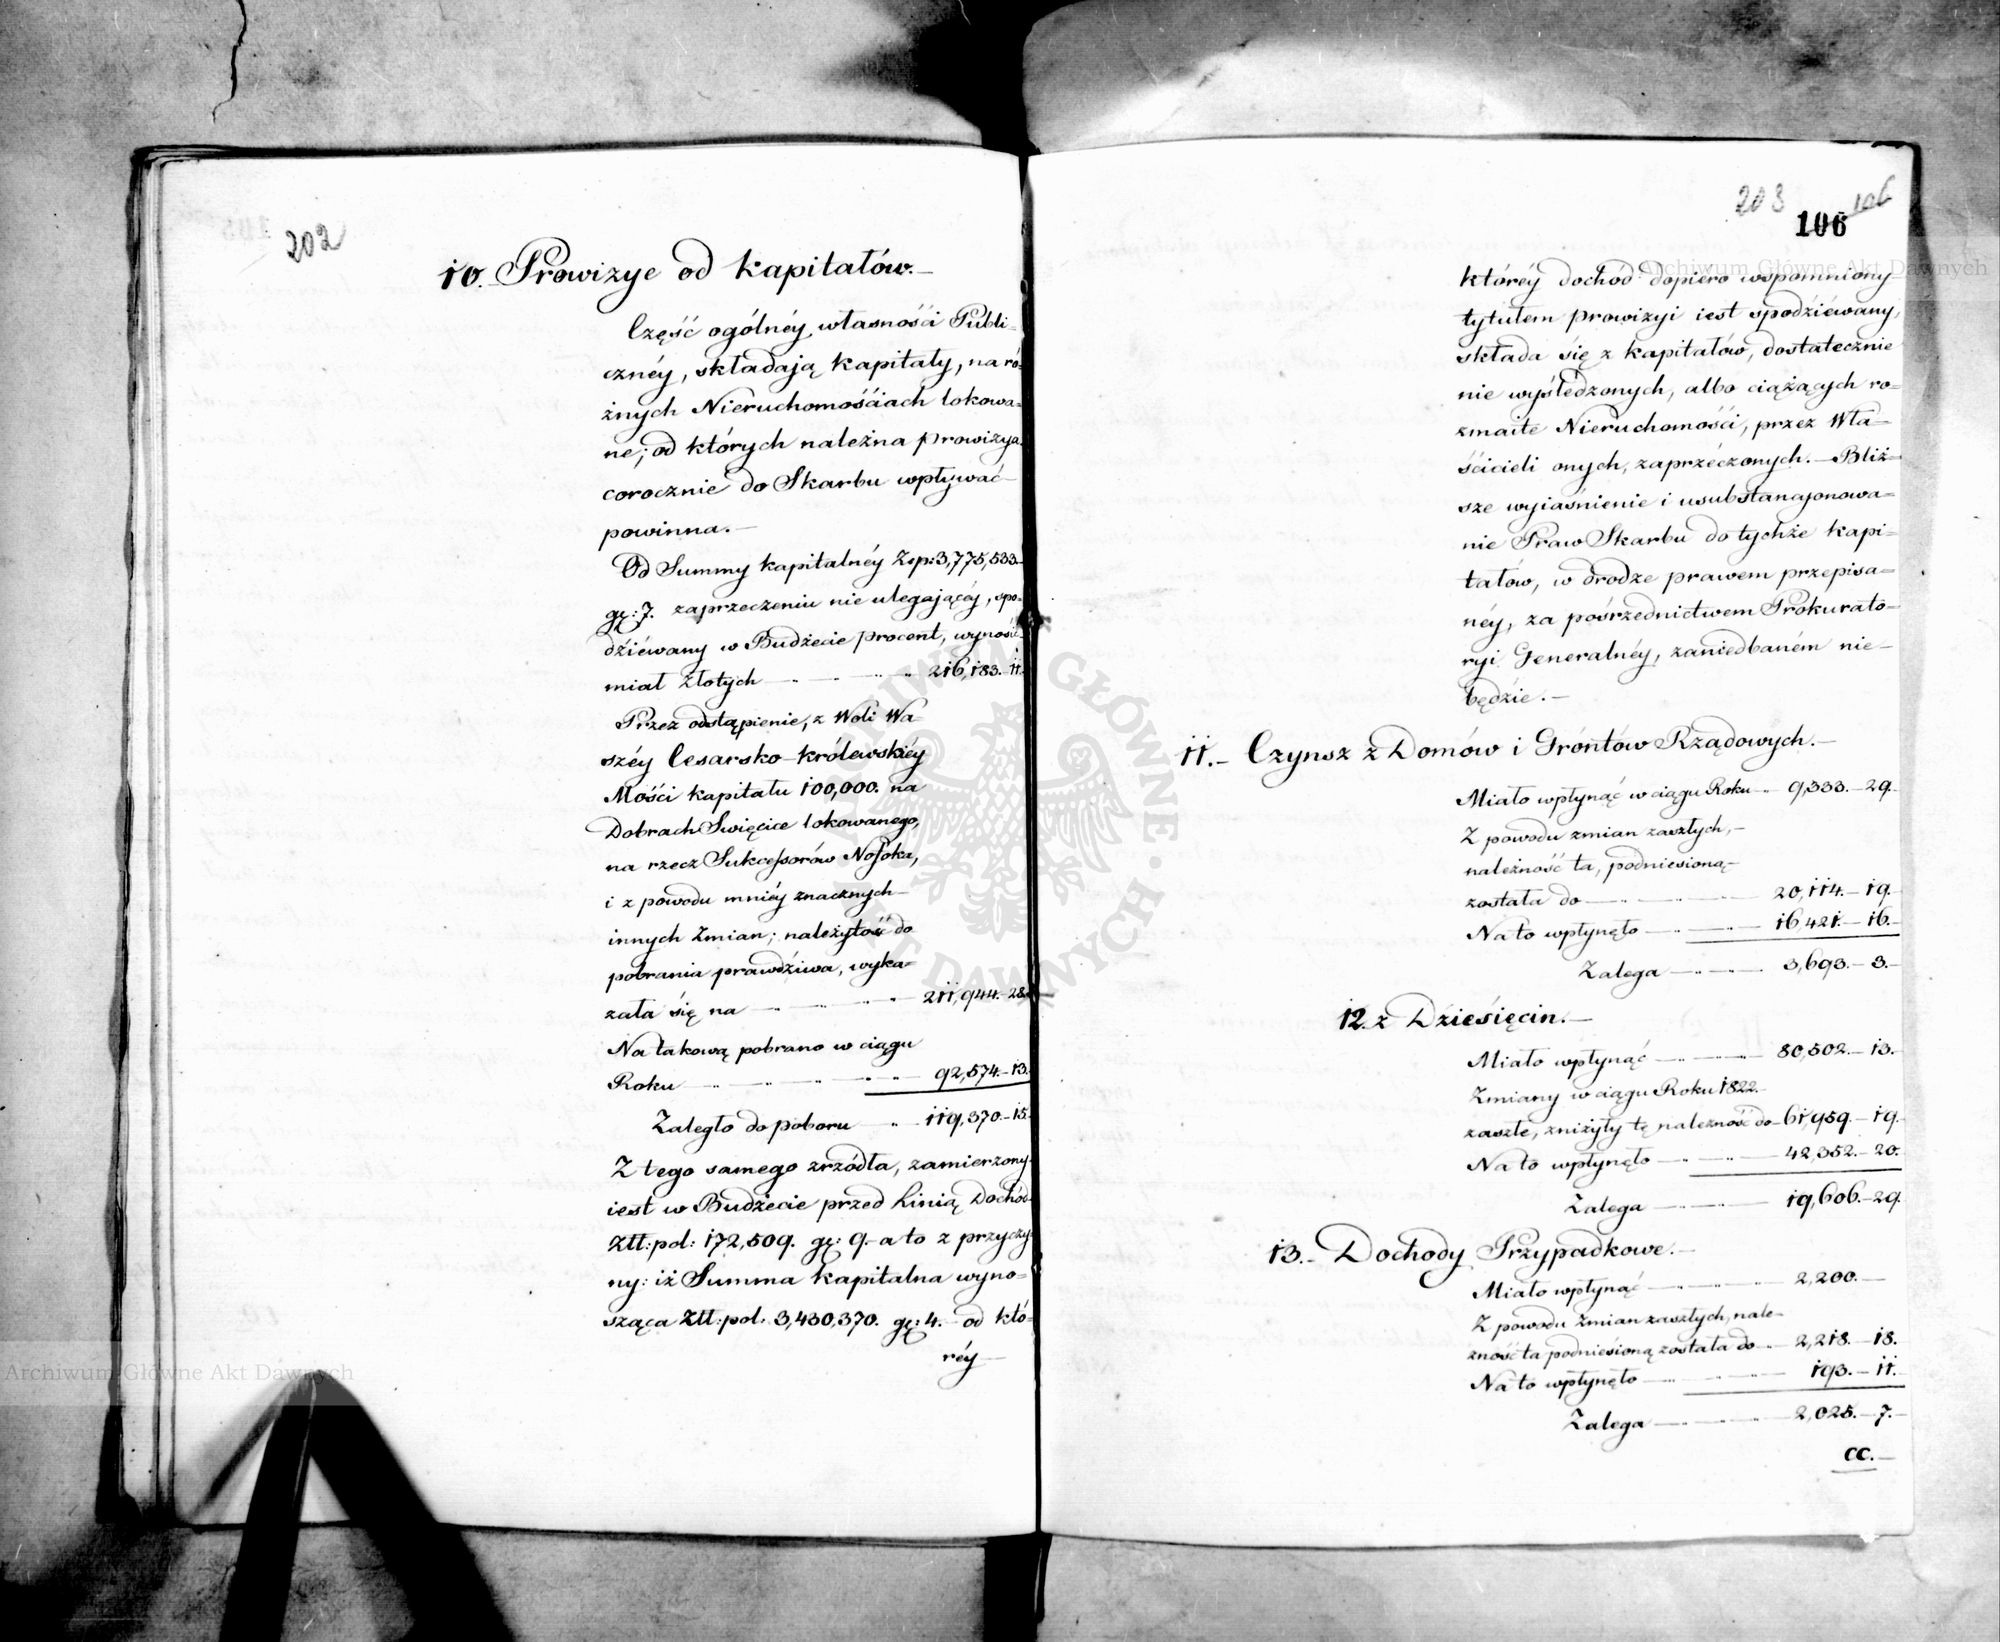 202
10. Prowizye od kapitałów.—
Część ogólnéy własnośći Publi-
cznéy, składają kapitały, na ró-
żnych Nieruchomośćiach lokowa-
ne; od których należna prowizya
corocznie do Skarbu wpływać—
powinna.—
Od Summy kapitalnéy Zlp: 3,775,533.
gr: 7. zaprzeczeniu nie ulegającéy, spo-
dźiéwany w Budżecie procent, wynośić
miał złotych — 216,183.— 11.
Przez odstąpienie, z Woli Wa-
széy Cesarsko-królewskiéy
Mośći kapitału 100,000. na
Dobrach Swięcice lokowanego,
na rzecz Sukcessorów Nossoka,
i z powodu mniéy znacznych—
innych zmian; należytość do
pobrania prawdźiwa, wyka-
zała się na — 211,944.— 28.
Na takową pobrano w ciągu
Roku — 92,574.— 13.
Zaległo do poboru — 119,370.— 15.
Z tego samego zrzódła, zamierzony
iest w Budżecie przed Linią Dochód
Ztt: pol: 172,509. gr: 9.— a to z przyczy-
ny: iż Summa kapitalna wyno-
sząca Ztt: pol: 3,430,370. gr: 4.— od któ-
réy—
203
106
106
któréy dochód dopiero wspomniony—
tytułem prowizyi iest spodźiéwany,
składa się z kapitałów, dostatecznie
nie wyśledzonych, albo ciążących ro-
zmaite Nieruchomośći, przez Wła-
śćicieli onych, zaprzéczonych.— Bliż-
sze wyiaśnienie i usubstancyonowa-
nie Praw Skarbu do tychże kapi-
tałów, w drodze prawem przepisa-
néy, za pośrzednictwem Prokurato-
ryi Generalnéy, zaniedbaném nie—
będźie.—
11.— Czynsz z Domów i Grontów Rządowych.—
Miało wpłynąć w ciągu Roku — 9,333.— 29.
Z powodu zmian zaszłych,—
należność ta, podniesioną—
została do — 20,114.— 19.
Na to wpłynęło — 16,421.— 16.
Zalega — 3,693.— 3.—
12. z Dźiesięcin.—
Miało wpłynąć — 80,502.— 13.
Zmiany w ciągu Roku 1822.—
zaszłe, zniżyły tę należność do— 61,959.— 19.
Na to wpłynęło — 42,352.— 20.
Zalega — 19,606.— 29.
13.— Dochody Przypadkowe.—
Miało wpłynąć — 2,200.—
Z powodu zmian zaszłych, nale-
zność ta podniesioną została do — 2,218.— 18.
Na to wpłynęło — 193.— 11.
Zalega — 2,025.— 7.—
cc.—
Archiwum Główne Akt Dawnych
Archiwum Główne Akt Dawnych
ARCHIWUM GŁÓWNE • AKT DAWNYCH •